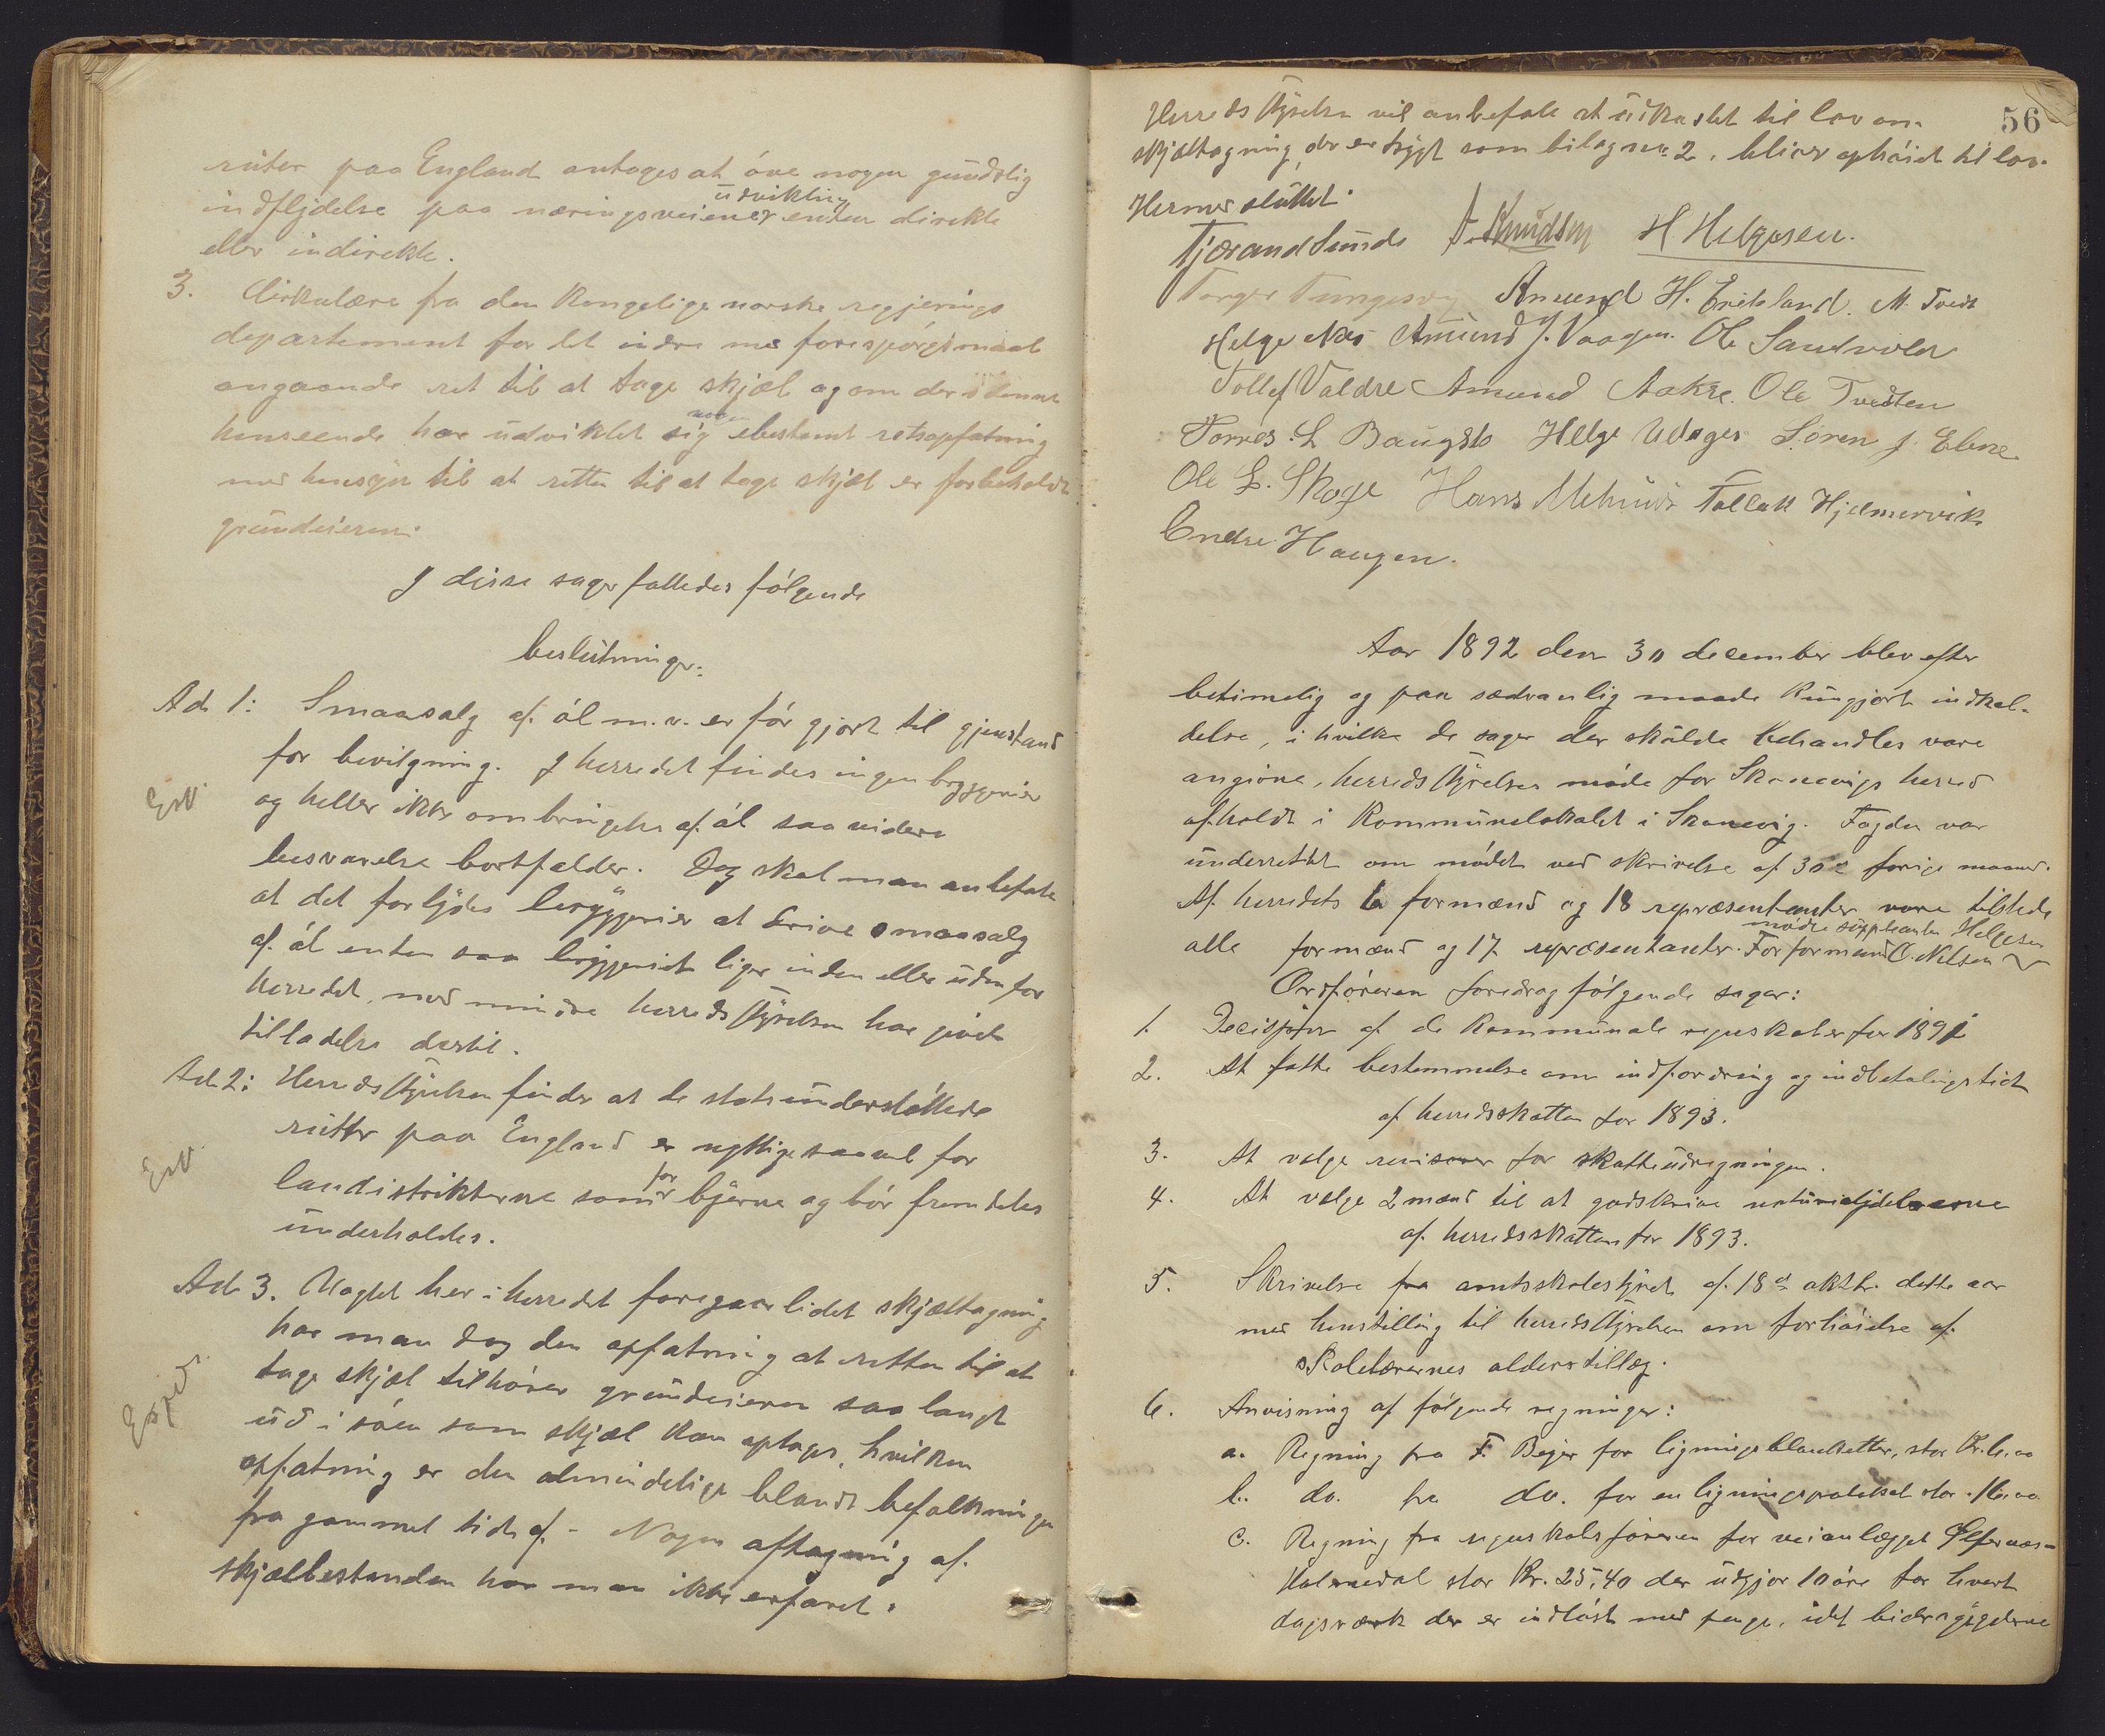 ruter paa England antages at öve nogen gunstig
indflydelse paa næringsveienes udvikling enten direkte
eller indirekte.
3. Cirkulære fra den kongelige norske regjerings
departement for det indre med forespörgsmaal
angaaende ret til at tage skjæl og om der i denne
henseende har udviklet sig nogen bestemt retsopfatning
med hensyn til at retten til at tage skjæl er forbeholdt
grundeieren.
I disse sager fattedes fölgende
beslutninger:
Ad 1: Smaasalg af öl m.v. er för gjort til gjenstand
for bevilgning. I herredet findes ingen bryggerier
Exp.
og heller ikke ombringelse af öl saa videre
besvarelse bortfalder. Dog skal man anbefale
at det forbydes bryggerier at drive smaasalg
af öl enten saa bryggeriet ligger inden eller udenfor
herredet, med mindre herredsstyrelsen har givet
tilladelse dertil.
Ad 2: Herredsstyrelsen finder at de statsunderstöttede
ruter paa England er nyttige saavel for
Exp.
landistrikterne som for byerne og bör fremdeles
underholdes.
Ad 3. Uagtet her i herredet foregaar lidet skjæltagning
har man dog den opfatning at retten til at
tage skjæl tilhörer grundeieren saa langt
Exped.
ud i söen som skjæl kan optages, hvilken
opfatning er den almindelige blandt befolkningen
fra gammel tid af. - Nogen aftagning af
skjælbestanden har man ikke erfaret.
56
Herredsstyrelsen vil anbefale at udkastet til lov om
skjæltagning, der er trygt som bilag no 2, bliver ophöiet til lov.
Hermed sluttet.
Tjærand Sunde F. Knudsen H Helgesen.
Torger Tungesvig Amund H. Eikeland. M. Tvedt
Helge Næs Amund J. Vaagen. Ole Sandvold
Tollef Valdre Amund Aakre. Ole Tvedten
Tormod L Baugsto Helge Udager Sören J. Ebne
Ole L. Skoge Hans Mehus Tollak Hjelmervik
Endre Haugen.
Aar 1892 den 30 december blev efter
betimelig og paa sædvanlig maade kungjort indkal-
delse, i hvilke de sager der skulde behandles vare
angivne, herredsstyrelses möde for Skonevigs herred
afholdt i kommunelokalet i Skonevig. Fogden var
underrettet om mödet ved skrivelse af 30te forige maaned.
Af herredets 6 formænd og 18 repræsentanter vare tilstede
alle formænd og 17 repræsentanter. For formand O. Nilsen mödte suppleanten Helgesen
Ordföreren foredrog fölgende sager:
1. Decisjon af de kommunale regnskaber for 1891
2. At fatte bestemmelse om indfordring og indbetalingstid
af herredsskatten for 1893.
3. At vælge revisorer for skatteudregningen.
4. At vælge 2 mænd til at godskrive naturalydelserne
af herredsskatten for 1893.
5. Skrivelse fra amtsskolestyret af 18de oktbr. dette aar
med henstilling til herredsstyrelsen om forhöielse af
skolelærernes alderstillæg.
6. Anvisning af fölgende regninger:
a. Regning fra F. Beyer for ligningsblanketter, stor Kr. 6,00
b. do. fra do. for en ligningsprotokol stor - 16,00
c. Regning fra regnskabsföreren for veianlægget Ølfernes-
Holmedal stor Kr. 25,40 der udgjör 10 öre for hvert
dagsværk der er indlöst med penge, idet bidragsyderne